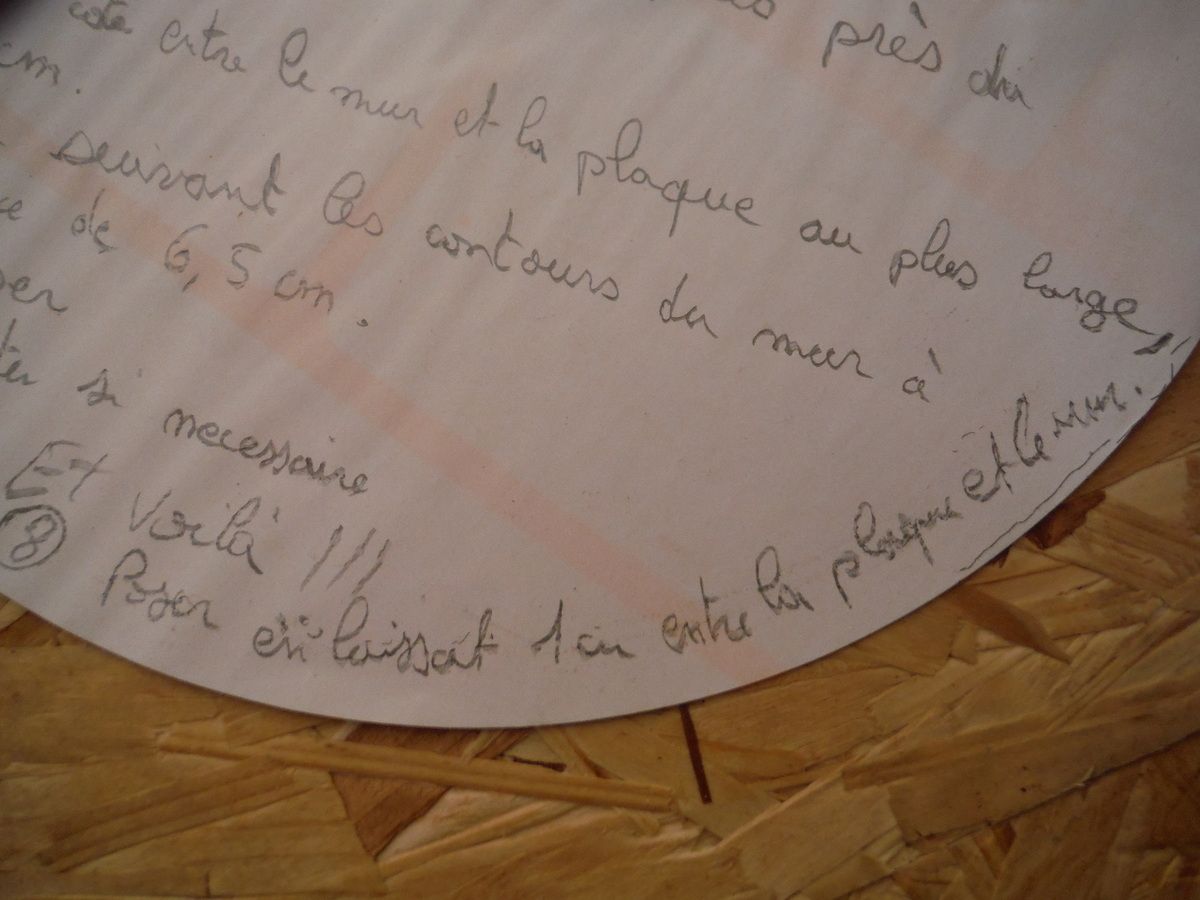 près du
cote entre le mur et la plaque au plus large,
cm.
suivant les contours du mur à
de 6,5 cm.
si necessaire
Et Voilà !!!
⑧ Poser en laissat 1 cm entre la plaque et le mur.